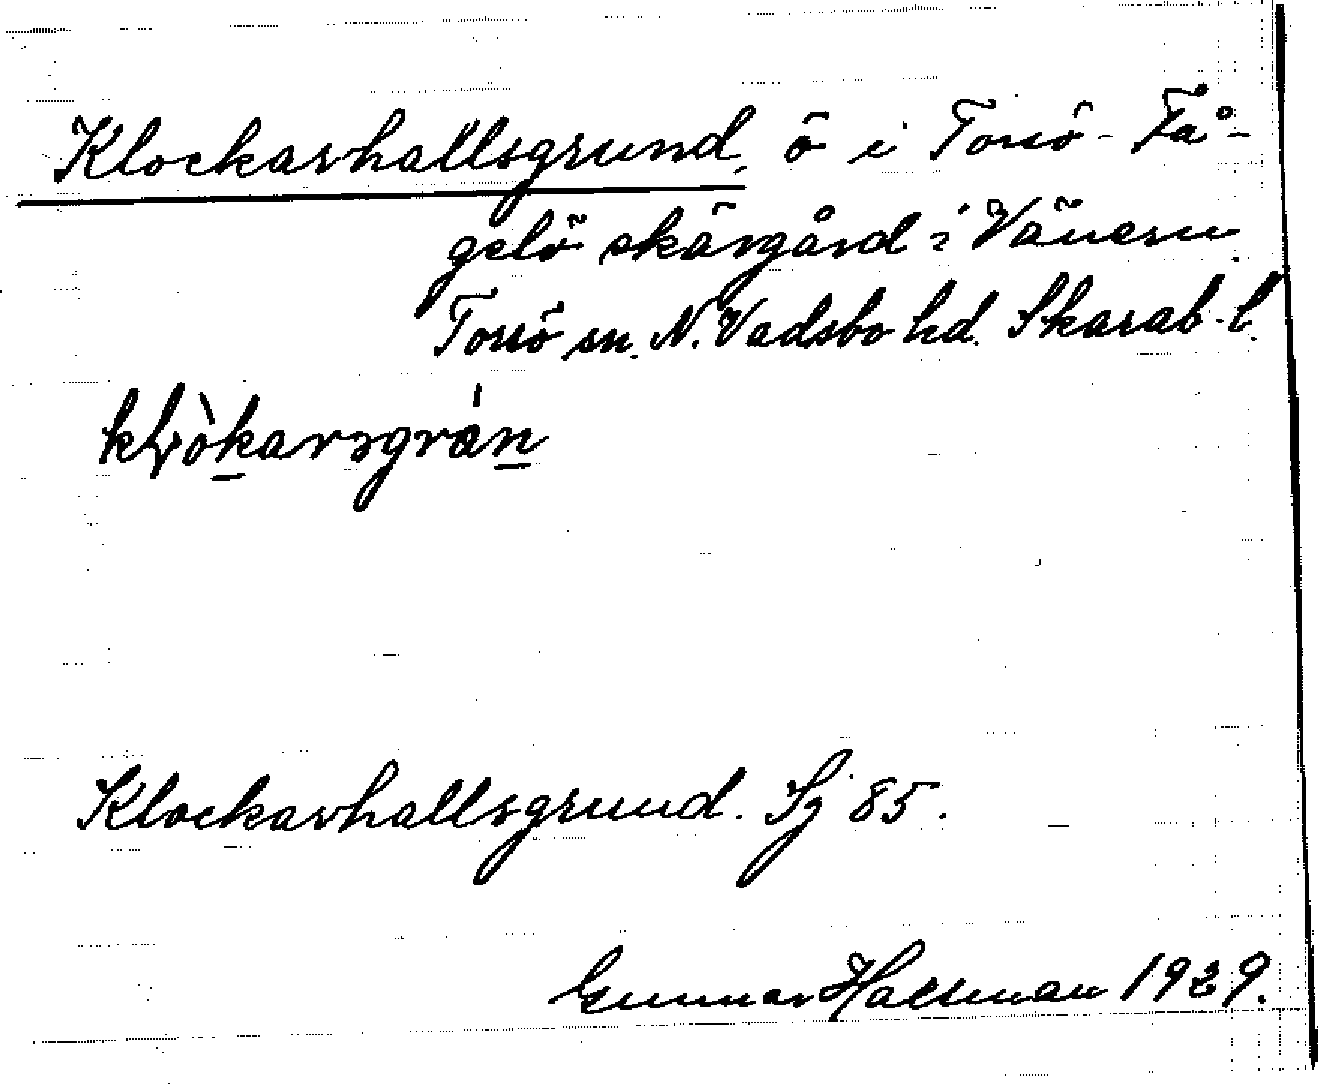 Klockarhallsgrund, ö i Torsö-Få-
gelö skärgård i Vänern.
Torsö sn. N. Vadsbo hd. Skarab. l.
Klockarhallsgrund. Sj 85.
Gunnar Hallman 1929.